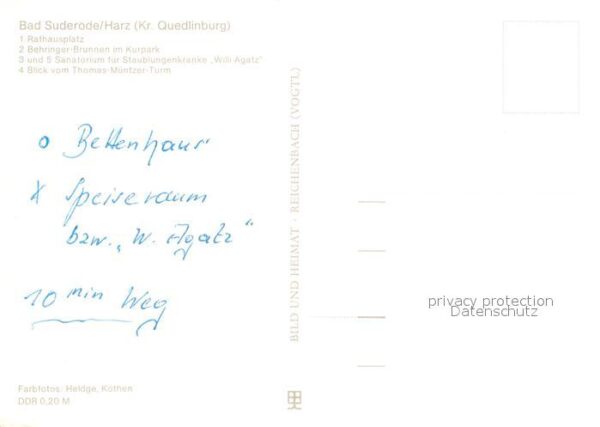 Bad Suderode/Harz (Kr. Quedlinburg)
1 Rathausplatz
2 Behringer-Brunnen im Kurpark
3 und 5 Sanatorium für Staublungenkranke „Willi Agatz"
4 Blick vom Thomas-Müntzer-Turm
o Bettenhaus
X Speiseraum
bzw. „W. Agatz"
10 min Weg
BILD UND HEIMAT · REICHENBACH (VOGTL.)
privacy protection
Datenschutz
Farbfotos: Heldge, Köthen
DDR 0,20 M